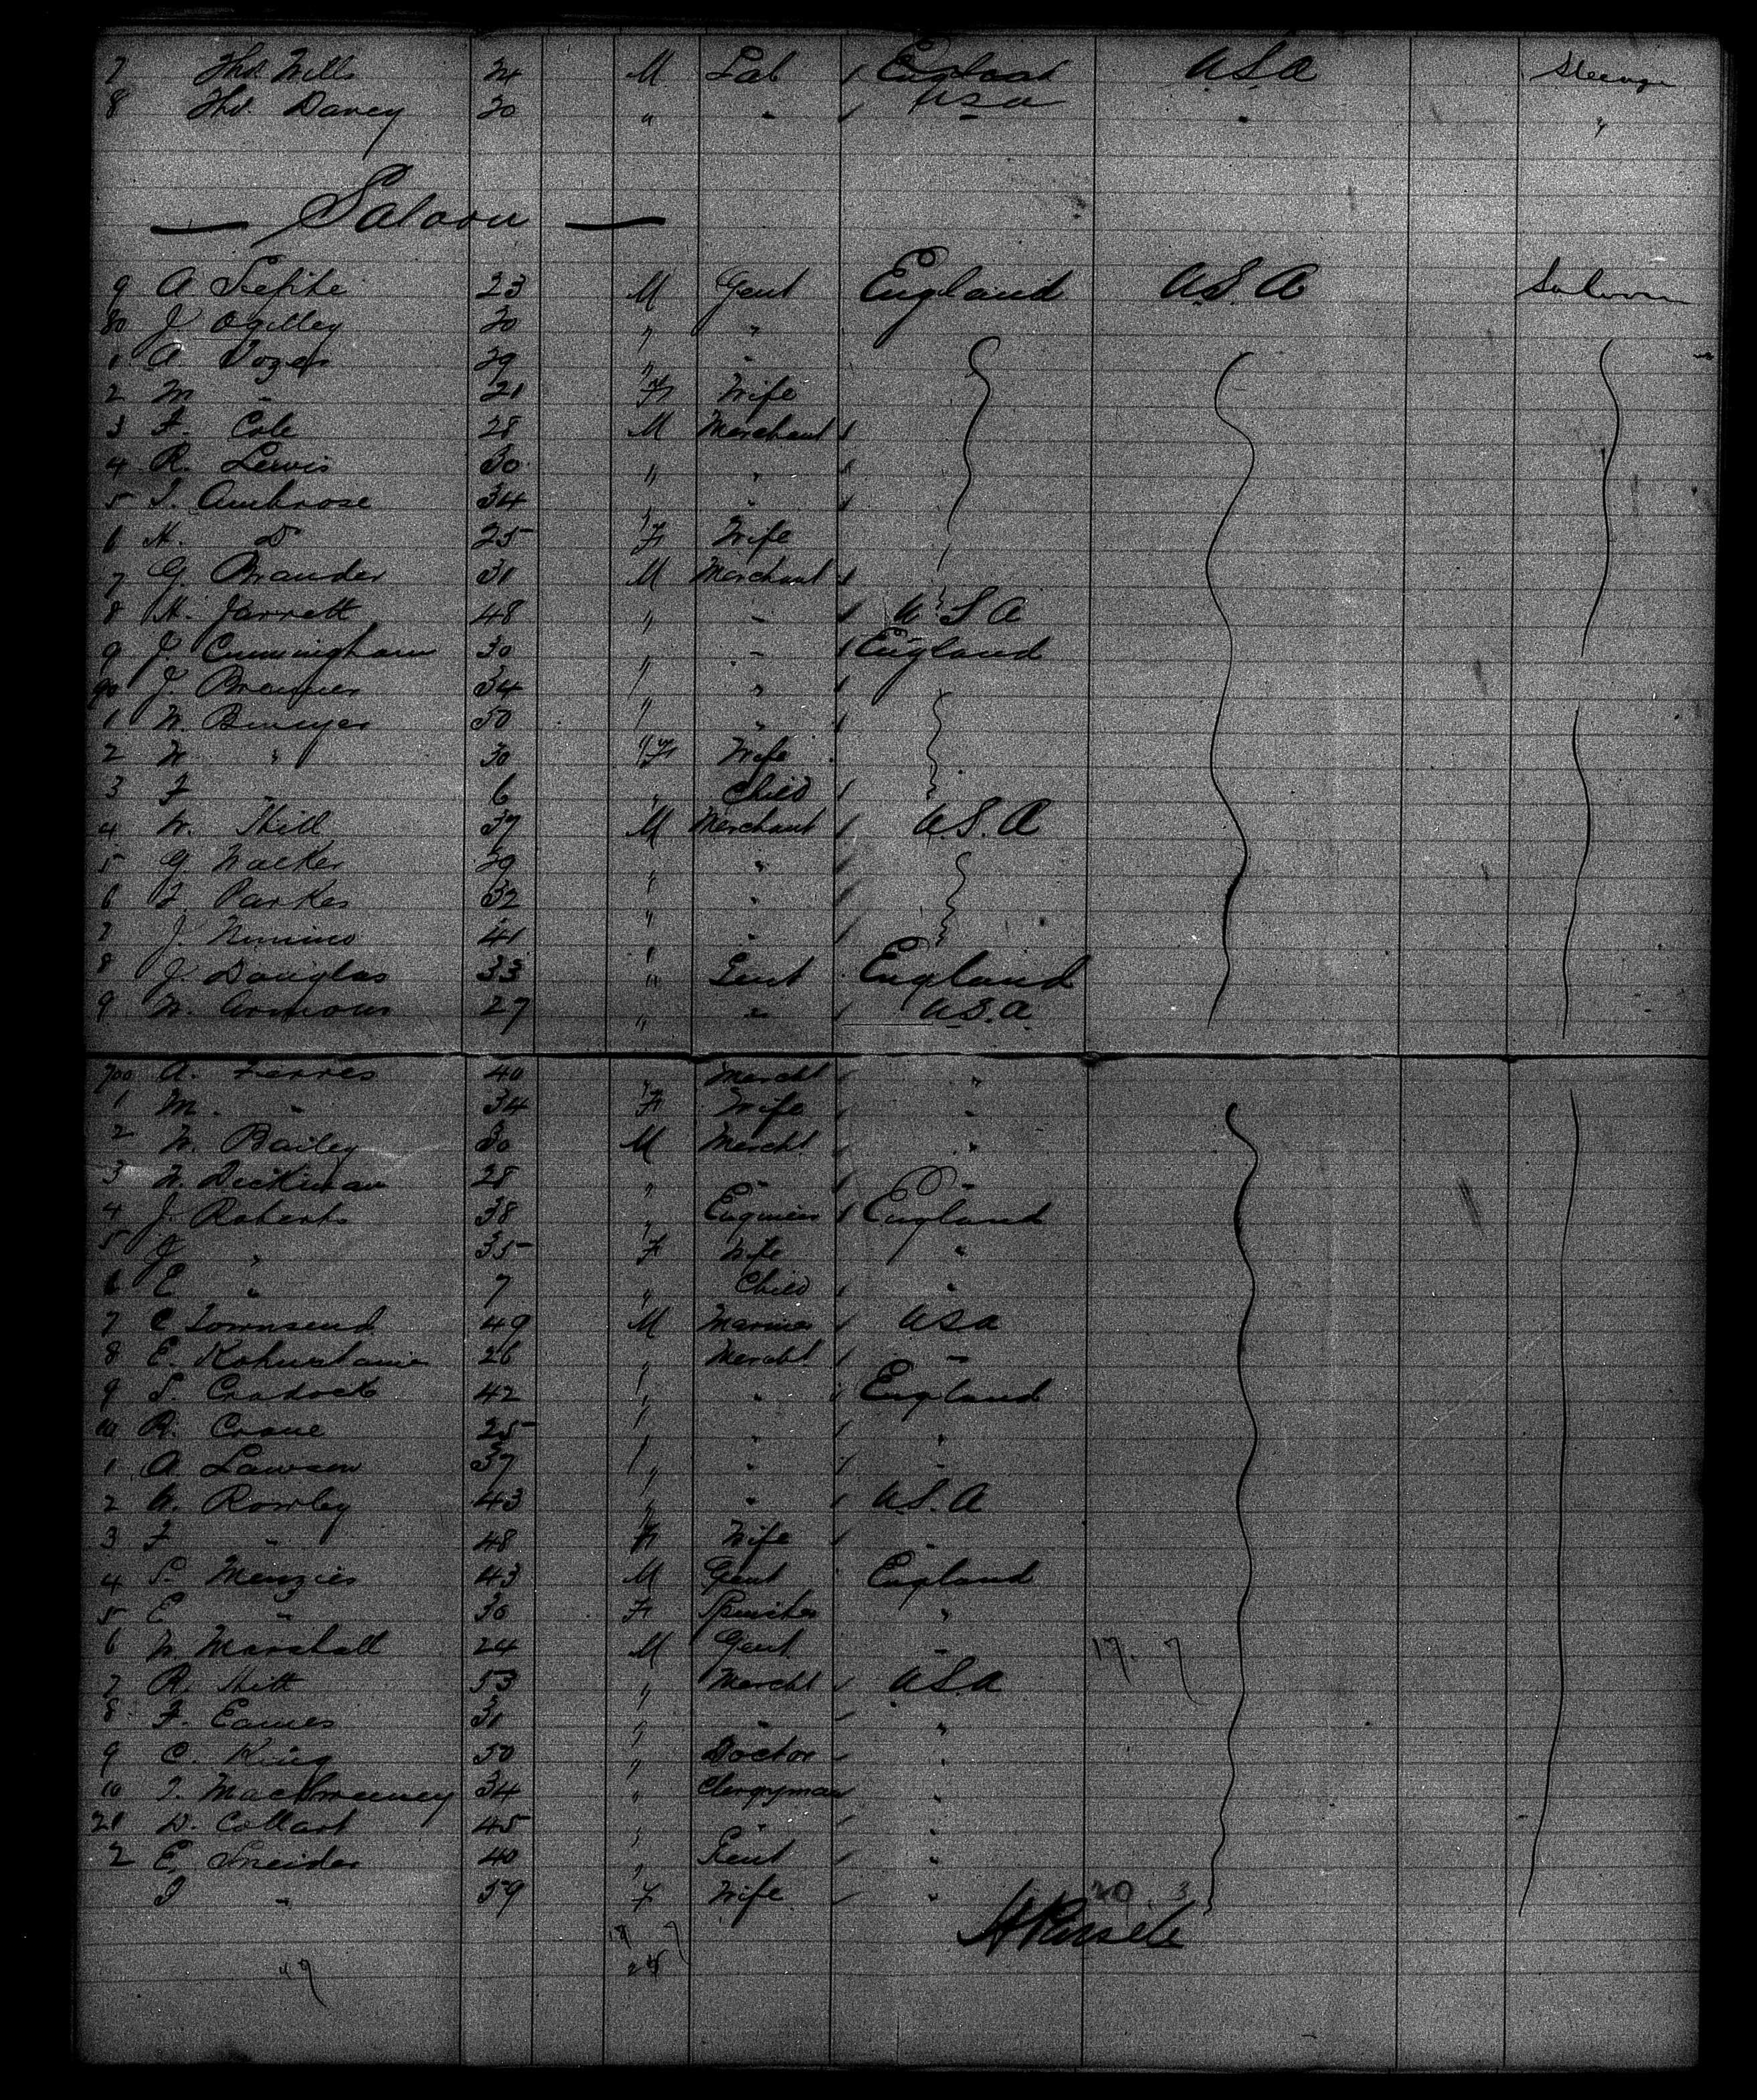 7 Thos Wills 24 M Lab England U.S.A Steerage
8 Thos Davey 30 " " U S A " "
— Saloon —
9 A 23 M Gent England U.S.A Saloon
80 J Ogilley 30 " "
1 A. 29 " "
2 M " 21 F Wife
3 F. Cole 28 M Merchant
4 R. Lewis 30 " "
5 S. Ambrose 34 " "
6 H. Do 25 F Wife
7 G. Brander 31 M Merchant
8 H. Jarrett 48 " " U S A
9 J. Cunningham 30 " " England
90 J. 34 " "
1 W. 50 " "
2 W " 30 F Wife
3 F " 6 " Child
4 W. Hill 37 M Merchant U.S.A
5 G. Walker 29 " "
6 F. Parkes 32 " "
7 J. 41 " "
8 J. Douglas 33 " Gent England
9 W. Armour 27 " " U.S.A.
700 A. Ferres 40 " Mercht "
1 M. " 34 F Wife "
2 W. Bailey 30 M Mercht. "
3 W. Dickman 28 " " "
4 J. Roberts 38 " Engineer England
5 J " 35 F Wife "
6 E " 7 " Child "
7 C Townsend 49 M Mariner U S A
8 E. 26 " Mercht. "
9 S. Cradock 42 " " England
10 R. Crane 25 " " "
1 A. Lawson 37 " " "
2 W. Rowley 43 " " U.S.A
3 F " 48 F Wife "
4 S. Menzies 43 M Gent England
5 E " 30 F Spinster "
6 W. Marshall 24 M Gent " 17. 7
7 R. Hitt 53 " Mercht U.S.A
8 F. Eames 31 " " "
9 C. King 50 " Doctor "
10 T. MacSweeney 34 " Clergyman "
21 D. Collart 45 " " "
2 E. Sneider 40 " Gent "
" 59 F Wife " 20. 3